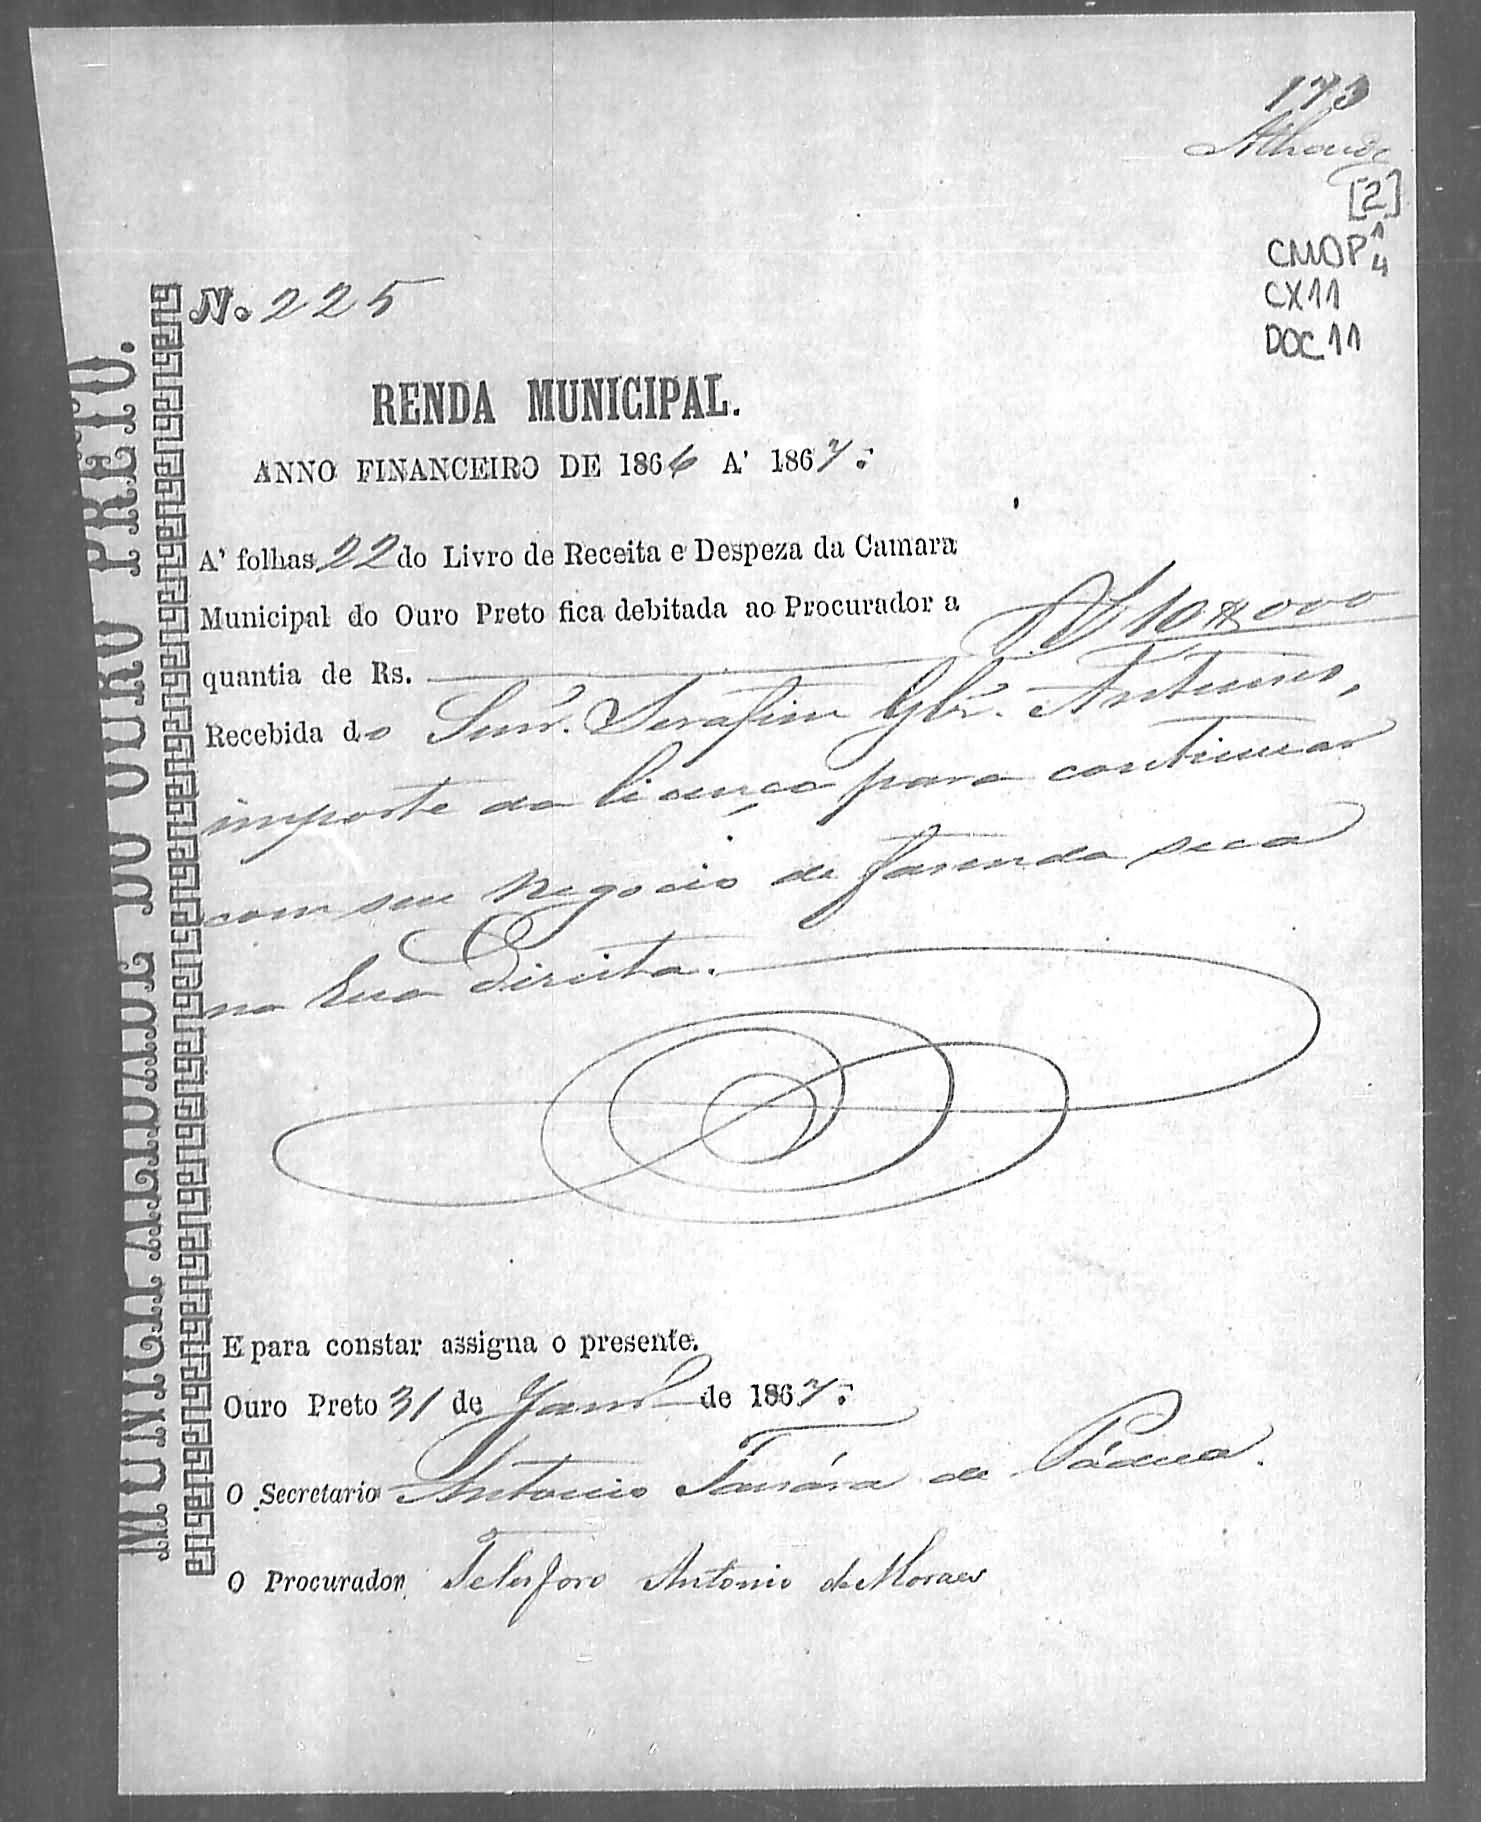 173
[2]
CMOP 1/4
CX11
DOC 11
MUNICIPALIDADE DO OURO PRETO.
N. 225
RENDA MUNICIPAL.
ANNO FINANCEIRO DE 1866 A' 1867:
A' folhas 22 do Livro de Receita e Despeza da Camara
Municipal do Ouro Preto fica debitada ao Procurador a
quantia de Rs. 10$000
Recebida do Snr. Serafim Glz. Antunes,
importe da licença para continuar
com seu negocio de fasenda seca
na Rua Direita.
E para constar assigna o presente.
Ouro Preto 31 de Janrº de 1867:
O Secretario Antonio de Pádua.
O Procurador Telesforo Antonio de Moraes